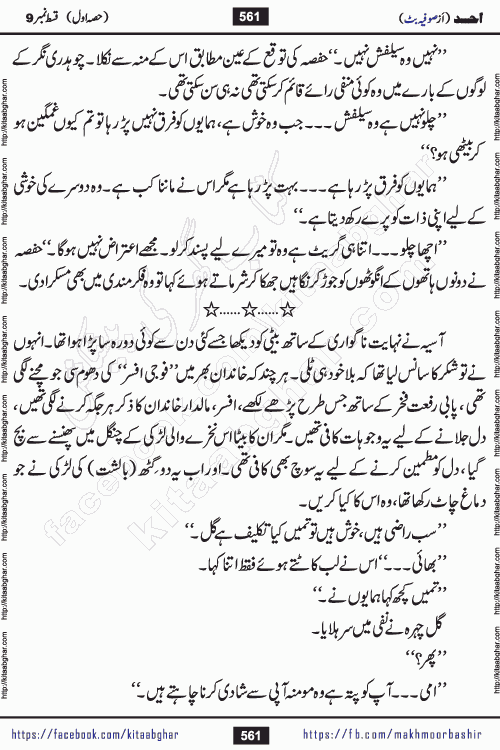 احمد (از صوفیہ بٹ) 561 (حصہ اول) قسط نمبر 9
”نہیں وہ سیلفش نہیں۔“ حفصہ کی توقع کے عین مطابق اس کے منہ سے نکلا۔ چوہدری نگر کے
لوگوں کے بارے میں وہ کوئی منفی رائے قائم کر سکتی تھی نہ ہی سن سکتی تھی۔
”چلو نہیں ہے وہ سیلفش ۔۔۔ جب وہ خوش ہے، ہمایوں کو فرق نہیں پڑ رہا تو تم کیوں غمگین ہو
کر بیٹھی ہو؟“
”ہمایوں کو فرق پڑ رہا ہے ۔۔۔ بہت پڑ رہا ہے مگر اس نے ماننا کب ہے۔ وہ دوسرے کی خوشی
کے لیے اپنی ذات کو پرے رکھ دیتا ہے۔“
”اچھا چلو ۔۔۔ اتنا ہی گریٹ ہے وہ تو میرے لیے پسند کر لو۔ مجھے اعتراض نہیں ہوگا۔“ حفصہ
نے دونوں ہاتھوں کے انگوٹھوں کو جوڑ کر نگاہیں جھکا کر شرماتے ہوئے کہا تو وہ فکر مندی میں بھی مسکرا دی۔
☆......☆......☆
آسیہ نے نہایت ناگواری کے ساتھ بیٹی کو دیکھا جسے کئی دن سے کوئی دورہ سا پڑا ہوا تھا۔ انہوں
نے تو شکر کا سانس لیا تھا کہ بلا خود ہی ٹلی۔ ہر چند کہ خاندان بھر میں ”فوجی افسر“ کی دھوم سی جو مچنے لگی
تھی، پاپی رفعت فخر کے ساتھ جس طرح پڑھے لکھے، افسر، مالدار خاندان کا ذکر ہر جگہ کرنے لگی تھیں،
دل جلانے کے لیے یہ وجوہات کافی تھیں۔ مگر ان کا بیٹا اس نخرے والی لڑکی کے چنگل میں پھنسنے سے بچ
گیا، دل کو مطمئن کرنے کے لیے یہ سوچ بھی کافی تھی۔ اور اب یہ دو گِٹھ (بالشت) کی لڑکی نے جو
دماغ چاٹ رکھا تھا، وہ اس کا کیا کریں۔
”سب راضی ہیں، خوش ہیں تو تمہیں کیا تکلیف ہے گل۔“
”بھائی ۔۔۔“ اس نے لب کاٹتے ہوئے فقط اتنا کہا۔
”تمہیں کچھ کہا ہمایوں نے۔“
گل چہرہ نے نفی میں سر ہلایا۔
”پھر؟“
”امی ۔۔۔ آپ کو پتہ ہے وہ مومنہ آپی سے شادی کرنا چاہتے ہیں۔“
https://facebook.com/kitaabghar 561 https://fb.com/makhmoorbashir
http://kitaabghar.com